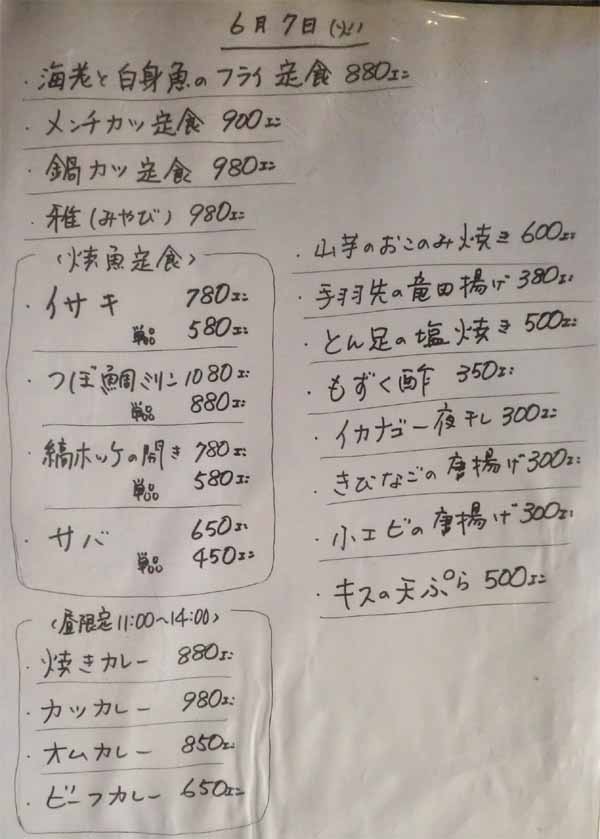 6月7日(火)
・海老と白身魚のフライ定食 880エン
・メンチカツ定食 900エン
・鍋カツ定食 980エン
・雅(みやび) 980エン
〈焼魚定食〉
・イサキ 780エン
単品 580エン
・つぼ鯛ミリン 1080エン
単品 880エン
・縞ホッケの開き 780エン
単品 580エン
・サバ 650エン
単品 450エン
〈昼限定11:00〜14:00〉
・焼きカレー 880エン
・カツカレー 980エン
・オムカレー 850エン
・ビーフカレー 650エン
・山芋のおこのみ焼き 600エン
・手羽先の竜田揚げ 380エン
・とん足の塩焼き 500エン
・もずく酢 350エン
・イカナゴ一夜干し 300エン
・きびなごの唐揚げ 300エン
・小エビの唐揚げ 300エン
・キスの天ぷら 500エン